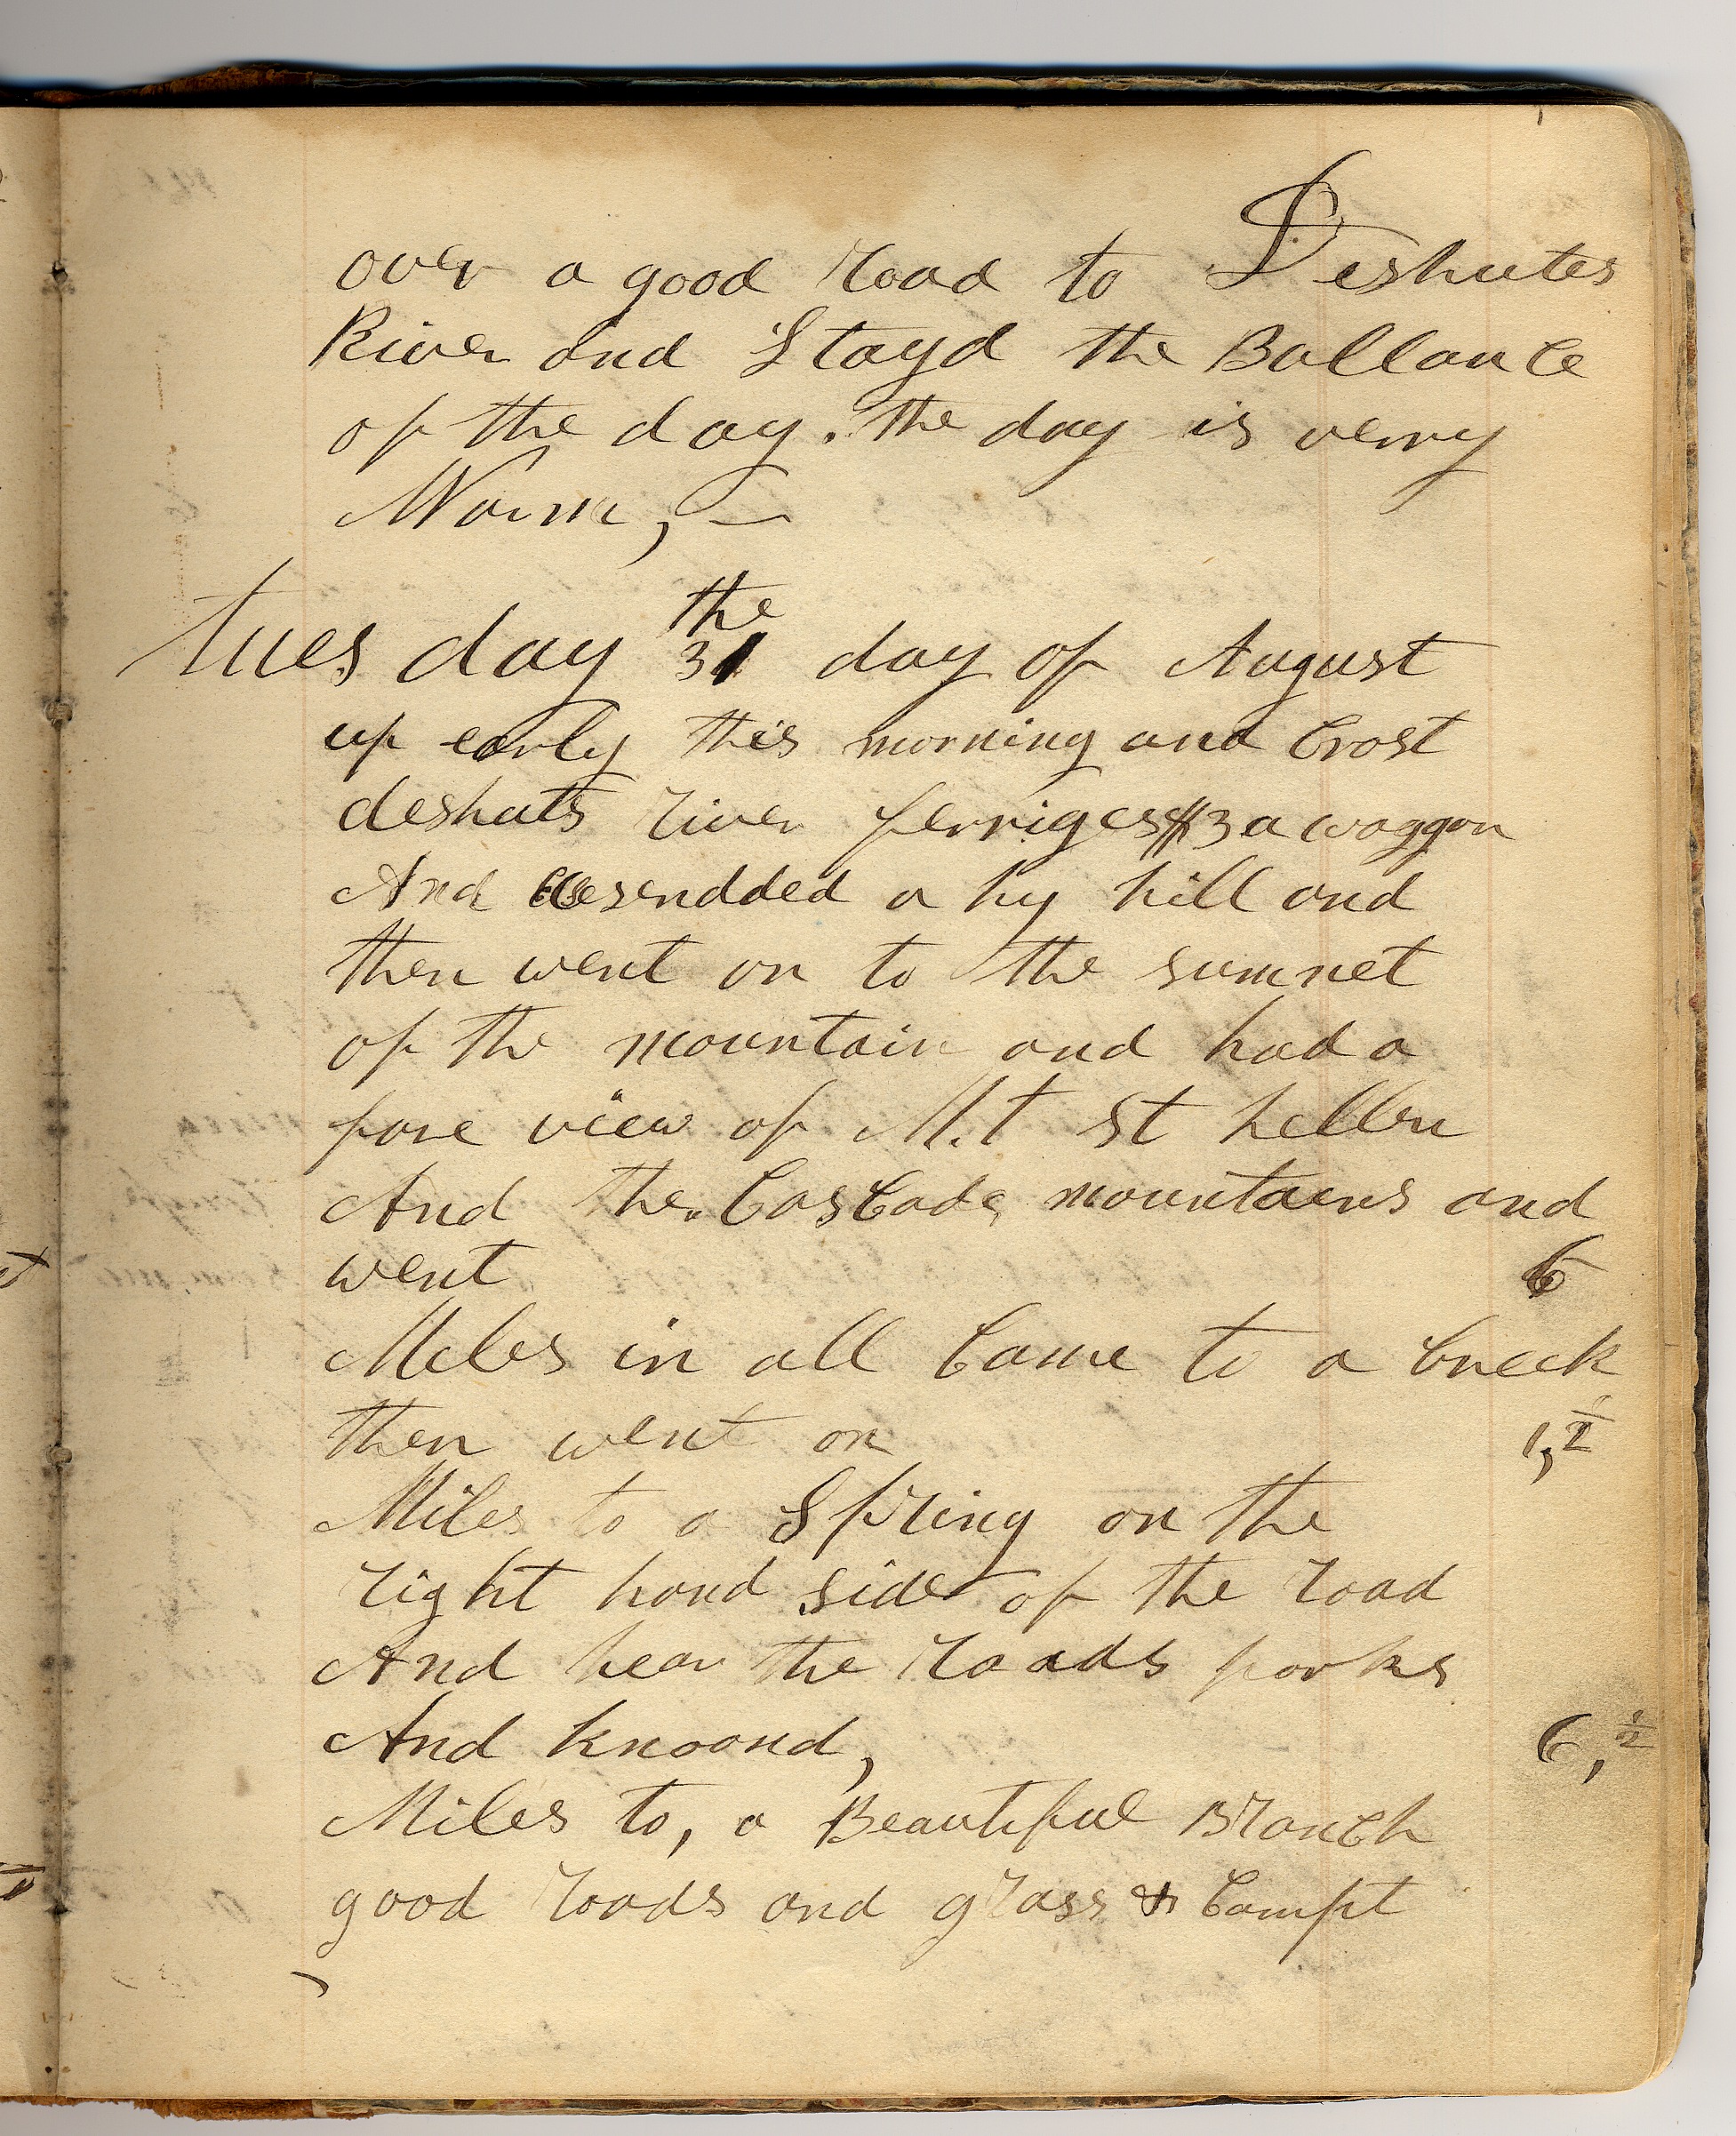 over a good road to Deshutes
River and Stayd the Ballance
of the day. the day is verry
Warm, —
tuesday the 31 day of August
up early this morning and Crost
deshuts river ferriges $3 a waggon
And asendded a hy hill and
then went on to the sumnet
of the mountain and had a
fare view of M.t St hellen
And the Cascade mountaens and
went 6
Miles in all Came to a Creek
then went on 1,½
Miles to a Spring on the
right hand side of the road
And hear the roads forks
And knoond, 6,½
Miles to, a Beautiful Branch
good roads and grass & Campt